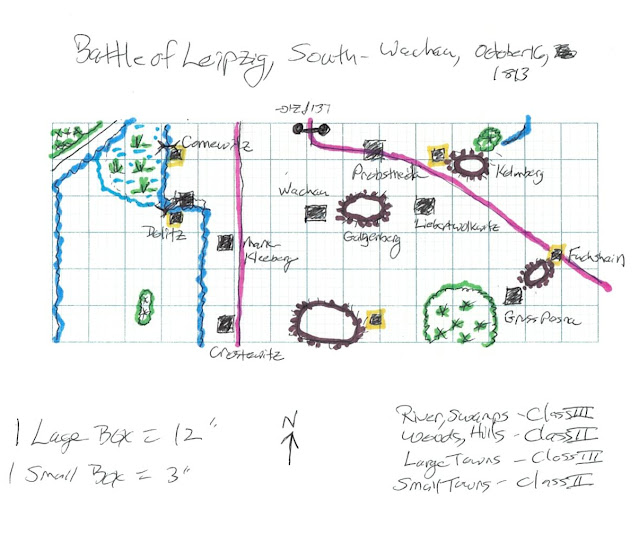 Battle of Leipzig, South - Wachau, October 16,
1813
LEIPZIG
Connewitz
Probstheida
Kolmberg
Wachau
Dolitz
Galgenberg
Liebertwolkwitz
Mark
Kleeberg
Fuchshain
Gross Posna
Crostewitz
1 Large Box = 12"
1 Small Box = 3"
N
River, Swamps - Class III
Woods, Hills - Class II
Large Towns - Class III
Small Towns - Class II